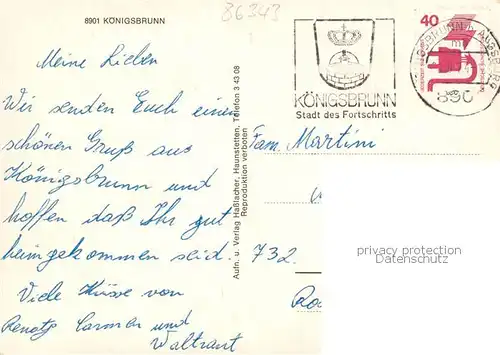 8901 KÖNIGSBRUNN
86343
Meine Lieben
Wir senden Euch einen
schönen Gruß aus
Königsbrunn und
hoffen daß Ihr gut
heimgekommen seid.
Viele Küsse von
Renate Carmen und
Waltraut
Aufn. u. Verlag Haßlacher, Haunstetten, Telefon 3 43 08
Reproduktion verboten
KÖNIGSBRUNN
Stadt des Fortschritts
40
890
Fam. Martini
732
privacy protection
Datenschutz